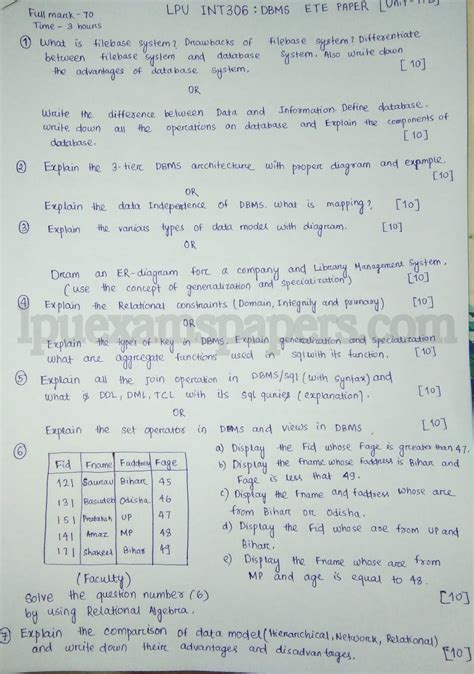 Full mark - 70
LPU INT306 : DBMS ETE PAPER [Unit-
Time - 3 hours
① What is filebase system? Drawbacks of filebase system? Differentiate
between filebase system and database system. Also write down
the advantages of database system. [10]
OR
Write the difference between Data and Information. Define database.
write down all the operations on database and Explain the components of
database. [10]
② Explain the 3-tier DBMS architecture with proper diagram and example.
[10]
OR
Explain the data Independence of DBMS. What is mapping? [10]
③ Explain the various types of data model with diagram. [10]
OR
Draw an ER-diagram for a company and Library Management System.
(use the concept of generalization and specialization) [10]
④ Explain the Relational constraints (Domain, Integrity and primary) [10]
OR
lpuexamspapers.com
Explain the types of key in DBMS. Explain generalization and specialization
what are aggregate functions used in sql with its function. [10]
⑤ Explain all the join operation in DBMS/sql (with syntax) and
what is DDL, DML, TCL with its sql quries (explanation). [10]
OR
Explain the set operator in DBMS and views in DBMS [10]
⑥
Fid Fname Faddress Fage
121 Saurav Bihar 45
131 Basudeb Odisha 46
151 Prabakah UP 47
141 Amaz MP 48
171 Shakeel Bihar 49
(Faculty)
Solve the question number (6)
by using Relational Algebra.
a) Display the Fid whose Fage is greater than 47.
b) Display the fname whose faddress is Bihar and
Fage is less that 49.
c) Display the fname and faddress whose are
from Bihar or Odisha.
d) Display the Fid whose are from UP and
Bihar.
e) Display the Fname whose are from
MP and age is equal to 48.
[10]
⑦ Explain the comparison of data model (Hierarchical, Network, Relational)
and write down their advantages and disadvantages. [10]